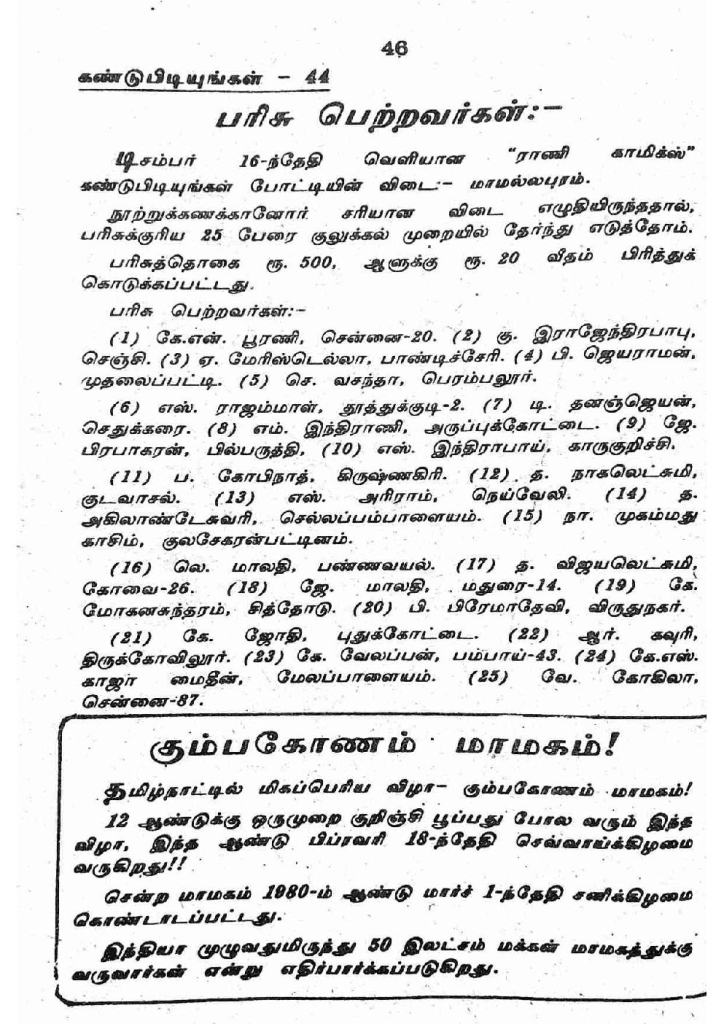 46
கண்டுபிடியுங்கள் - 44
பரிசு பெற்றவர்கள்:-
டிசம்பர் 16-ந்தேதி வெளியான "ராணி காமிக்ஸ்"
கண்டுபிடியுங்கள் போட்டியின் விடை:- மாமல்லபுரம்.
நூற்றுக்கணக்கானோர் சரியான விடை எழுதியிருந்ததால்,
பரிசுக்குரிய 25 பேரை குலுக்கல் முறையில் தேர்ந்து எடுத்தோம்.
பரிசுத்தொகை ரூ. 500, ஆளுக்கு ரூ. 20 வீதம் பிரித்துக்
கொடுக்கப்பட்டது.
பரிசு பெற்றவர்கள்:-
(1) கே.என். பூரணி, சென்னை-20. (2) கு. இராஜேந்திரபாபு,
செஞ்சி. (3) ஏ. மேரிஸ்டெல்லா, பாண்டிச்சேரி. (4) பி. ஜெயராமன்,
முதலைப்பட்டி. (5) செ. வசந்தா, பெரம்பலூர்.
(6) எஸ். ராஜம்மாள், தூத்துக்குடி-2. (7) டி. தனஞ்ஜெயன்,
செதுக்கரை. (8) எம். இந்திராணி, அருப்புக்கோட்டை. (9) ஜே.
பிரபாகரன், பில்பருத்தி, (10) எஸ். இந்திராபாய், காருகுறிச்சி.
(11) ப. கோபிநாத், கிருஷ்ணகிரி. (12) த. நாகலெட்சுமி,
குடவாசல். (13) எஸ். அரிராம், நெய்வேலி. (14) த.
அகிலாண்டேசுவரி, செல்லப்பம்பாளையம். (15) நா. முகம்மது
காசிம், குலசேகரன்பட்டினம்.
(16) லெ. மாலதி, பண்ணவயல். (17) த. விஜயலெட்சுமி,
கோவை-26. (18) ஜே. மாலதி, மதுரை-14. (19) கே.
மோகனசுந்தரம், சித்தோடு. (20) பி. பிரேமாதேவி, விருதுநகர்.
(21) கே. ஜோதி, புதுக்கோட்டை. (22) ஆர். கவுரி,
திருக்கோவிலூர். (23) கே. வேலப்பன், பம்பாய்-43. (24) கே.எஸ்.
காஜா மைதீன், மேலப்பாளையம். (25) வே. கோகிலா,
சென்னை-87.
கும்பகோணம் மாமகம்!
தமிழ்நாட்டில் மிகப்பெரிய விழா- கும்பகோணம் மாமகம்!
12 ஆண்டுக்கு ஒருமுறை குறிஞ்சி பூப்பது போல வரும் இந்த
விழா, இந்த ஆண்டு பிப்ரவரி 18-ந்தேதி செவ்வாய்க்கிழமை
வருகிறது!!
சென்ற மாமகம் 1980-ம் ஆண்டு மார்ச் 1-ந்தேதி சனிக்கிழமை
கொண்டாடப்பட்டது.
இந்தியா முழுவதுமிருந்து 50 இலட்சம் மக்கள் மாமகத்துக்கு
வருவார்கள் என்று எதிர்பார்க்கப்படுகிறது.